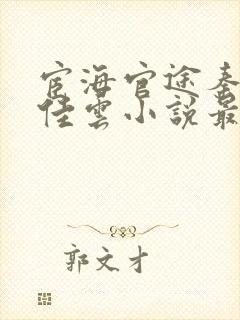 宦海官途秦
佳雲小說最
郭文才